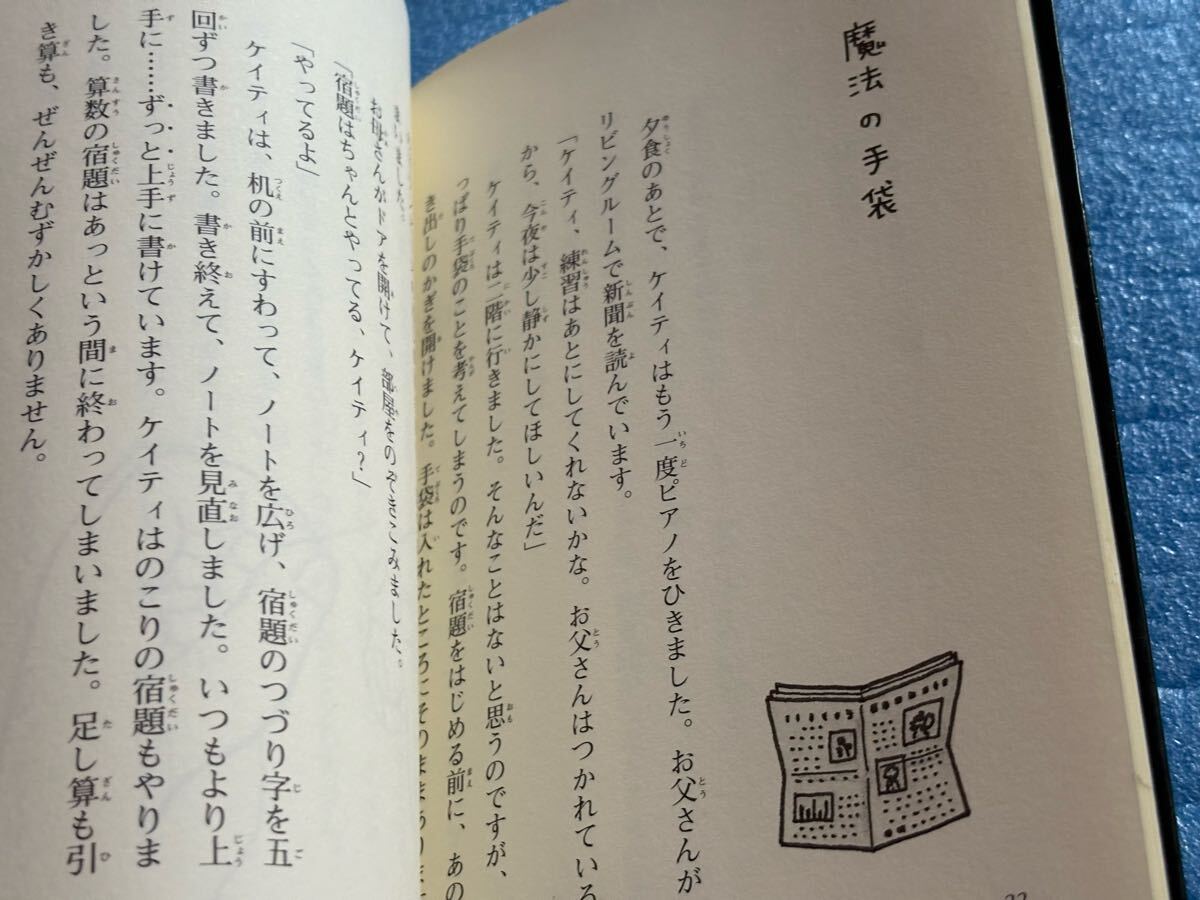 魔法の手袋
夕食のあとで、ケイティはもう一度ピアノをひきました。お父さんが
リビングルームで新聞を読んでいます。
「ケイティ、練習はあとにしてくれないかな。お父さんはつかれている
から、今夜は少し静かにしてほしいんだ」
ケイティは二階に行きました。そんなことはないと思うのですが、
っぱり手袋のことを考えてしまうのです。宿題をはじめる前に、あの
き出しのかぎを開けました。手袋は入れたところにそのままありま
お母さんがドアを開けて、部屋をのぞきこみました。
「宿題はちゃんとやってる、ケイティ？」
「やってるよ」
ケイティは、机の前にすわって、ノートを広げ、宿題のつづり字を五
回ずつ書きました。書き終えて、ノートを見直しました。いつもより上
手に……ずっと上手に書けています。ケイティはのこりの宿題もやりま
した。算数の宿題はあっという間に終わってしまいました。足し算も引
き算も、ぜんぜんむずかしくありません。